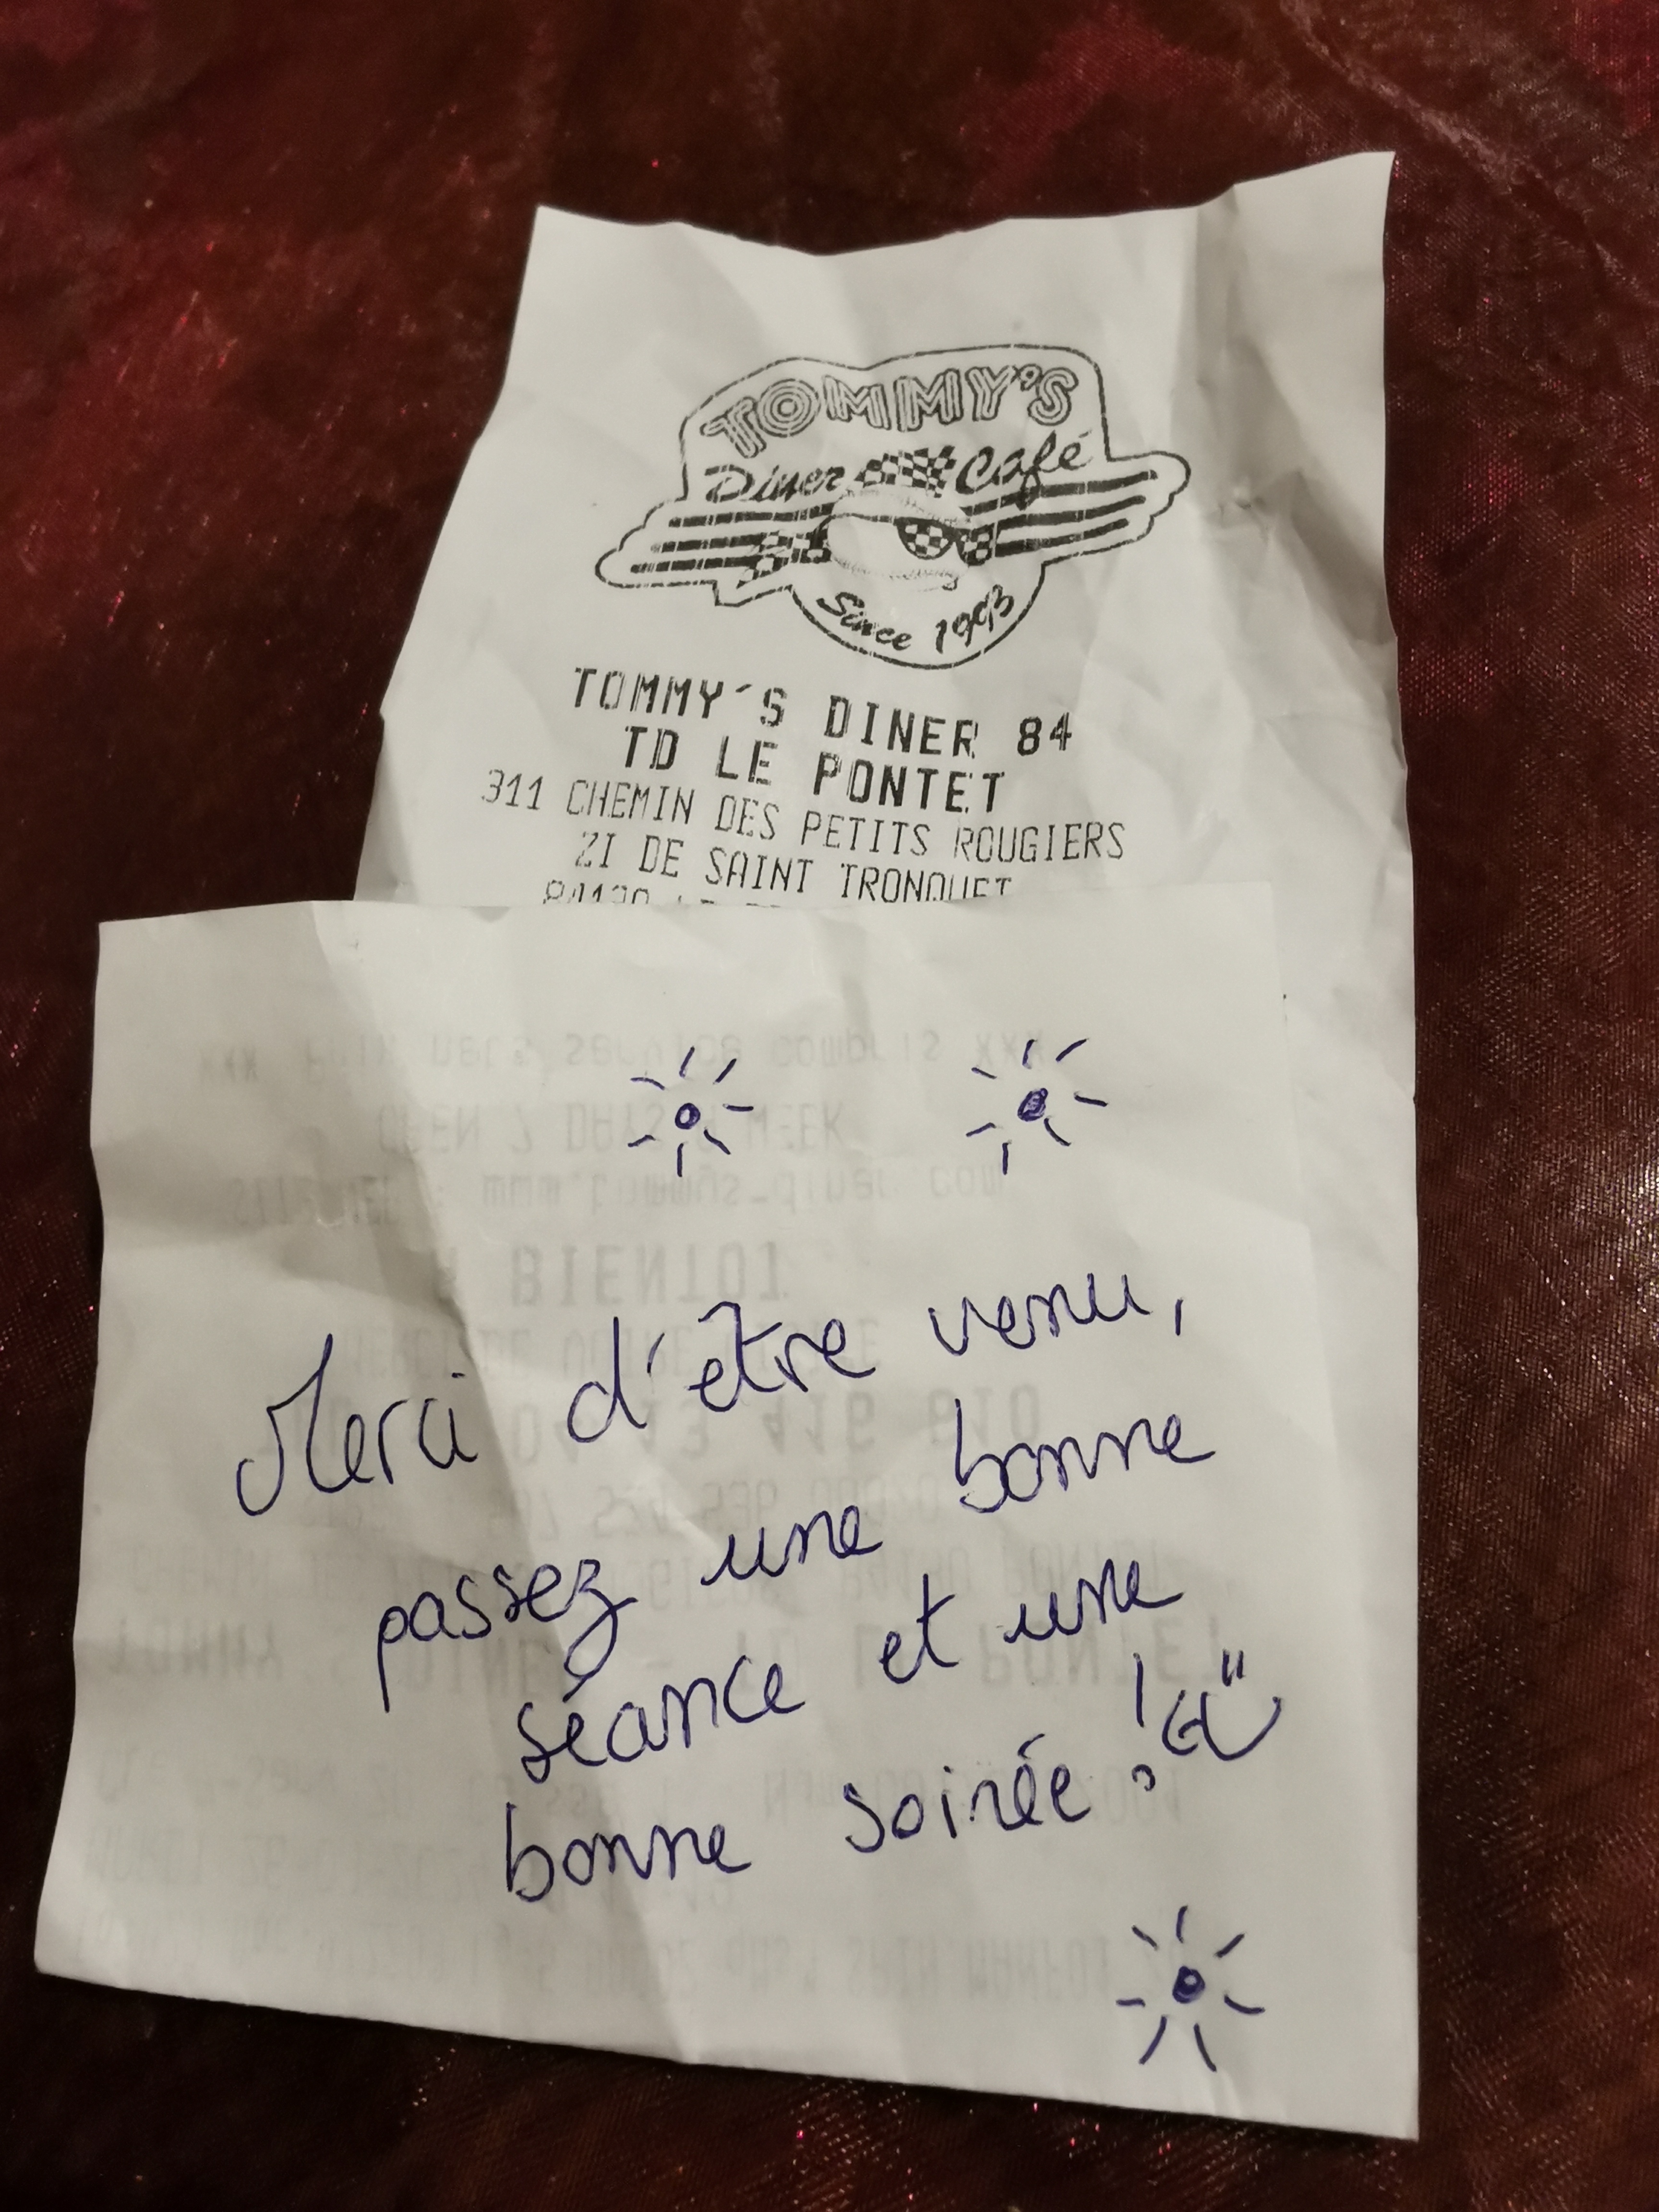 TOMMY'S
Diner Café
Since 1993
TOMMY'S DINER 84
TD LE PONTET
311 CHEMIN DES PETITS ROUGIERS
ZI DE SAINT TRONQUET
84130
Merci d'être venu,
passez une bonne
séance et une
bonne soirée !